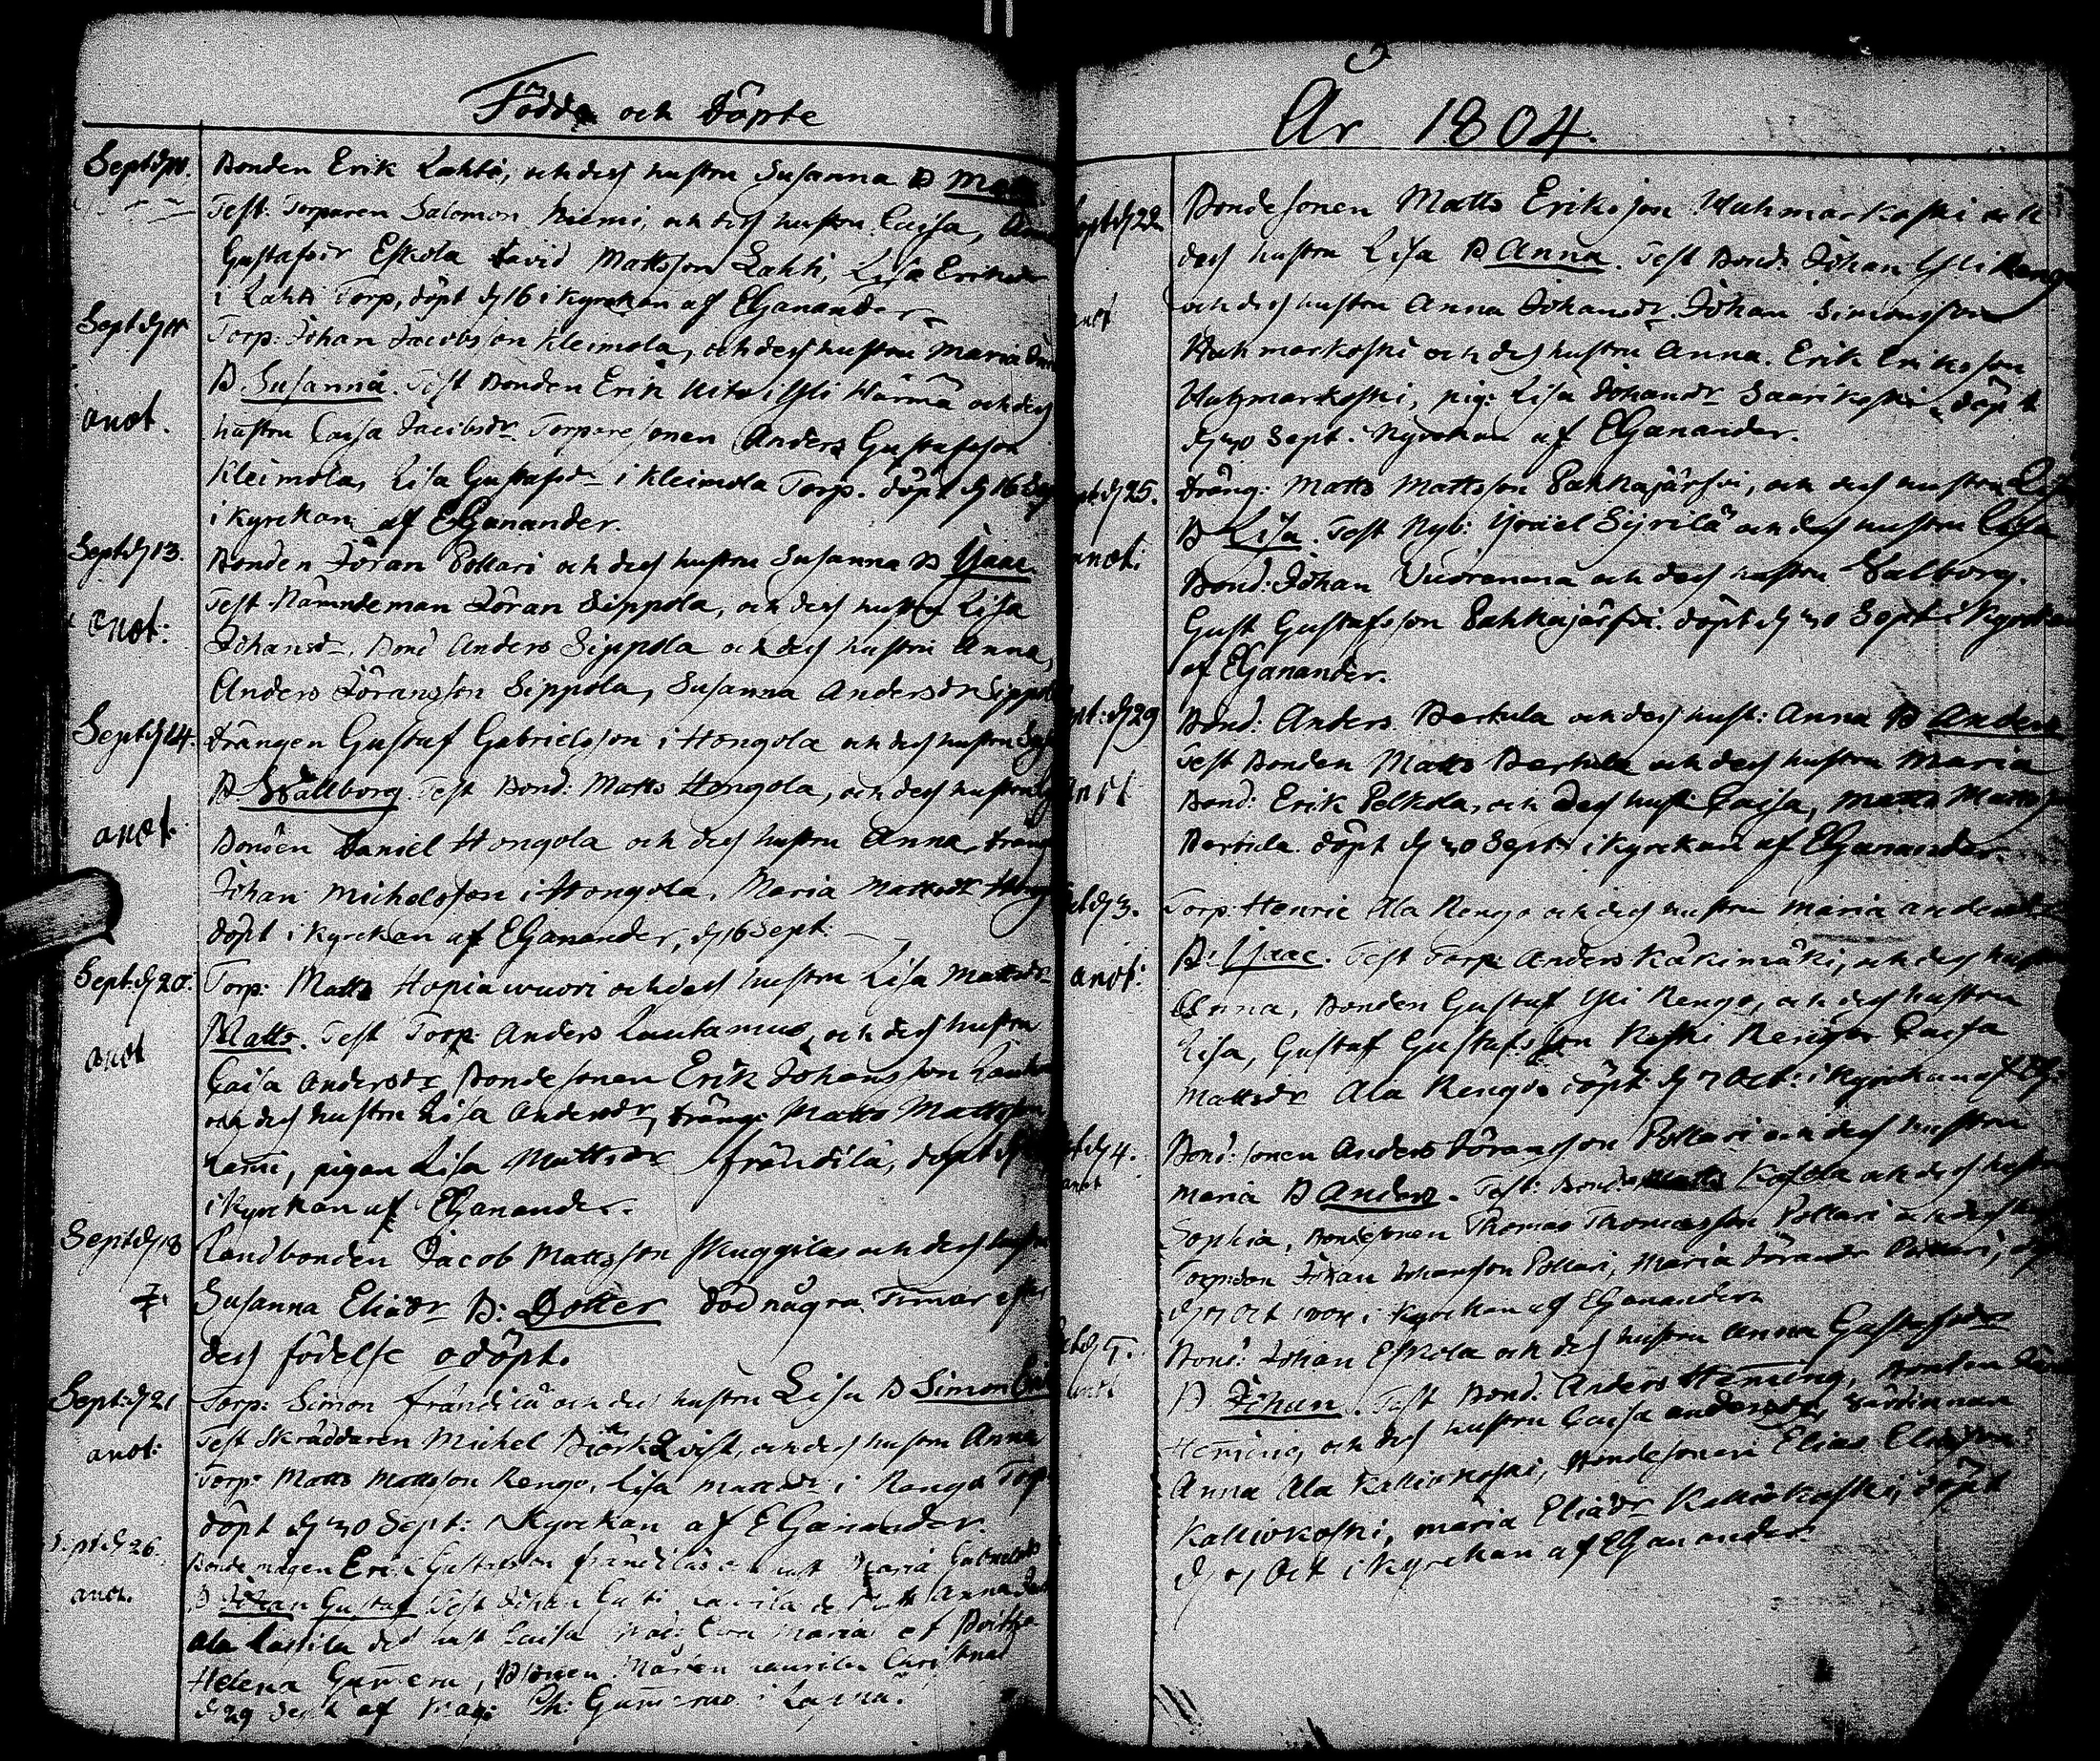 Födde och döpte
Sept. d. 11. Bonden Erik Lahti, och dess hustru Susanna B Matts
Test. Torparen Salomon Niemi, och dess hustru Caisa,
Gustafsdr Eskola David Mattsson Lahti, Lisa Eriksdr
i Lahti Torp, döpt d 16 i Kyrckan af EGanander
Sept d 11 Torp: Johan Jacobsson Kleimola, och dess hustru Maria
anot. B Susanna. Test Bonden Erik Uitu i Ylihärmä och dess
hustru Caisa Jacobsdr Torparesonen Anders Gustafsson
Kleimola, Lisa Gustafsdr i Kleimola Torp. döpt d 16
i Kyrckan af EGanander.
Sept d 13. Bonden Jöran Pollari och dess hustru Susanna B Isaac.
anot: Test Nämndeman Jöran Sippola, och dess hustru Lisa
Johansdr, Bond Anders Sippola och dess hustru Anna,
Anders Jöransson Sippola, Susanna Andersdr Sippola
Sept d 14. drängen Gustaf Gabrielsson i Hongola och dess hustru
B Wallborg. Test Bond: Matts Hongola, och dess hustru
anot. Bonden Daniel Hongola och dess hustru Anna, dräng
Johan Michelsson i Hongola, Maria Mattsdr
döpt i Kyrckan af EGanander, d 16 Sept:
Sept. d 20. Torp: Matts Hopiawuori och dess hustru Lisa Mattsdr
anot Matts. Test Torp: Anders Lautamus, och dess hustru
Caisa Andersdr, Bondesonen Erik Johansson
och dess hustru Lisa Andersdr, dräng: Matts Mattsson
pigan Lisa Mattsdr frändilä, döpt
i Kyrckan af EGanander.
Sept d 18 Landbonden Jacob Mattsson Skuggila och dess hustru
Susanna Eliædr B: Dotter död några Timar efter
dess födelse odöpt.
Sept: d 21 Torp: Simon frändilä och dess hustru Lisa B Simon
anot: Test Skräddaren Michel Björkqvist, och dess hustru Anna
Torp: Matts Mattsson Rengo, Lisa Mattsdr i Rengo Torp
döpt d 30 Sept: i Kyrckan af EGanander.
Sept d 26. Bondemågen Erik Gustafsson frändilä
anot. B Johan Gustaf Test Johan
Ala Lassila dess hust Caisa Maria et Britha
Helena
d 29 Sept af Mag:
År 1804.
Sept d 22 Bondesonen Matts Eriksson Uuhmarkoski och
dess hustru Lisa B Anna. Test Bond: Johan Yli Rengo
anot och dess hustru Anna Johansdr. Johan Simonsson
Uuhmarkoski och dess hustru Anna. Erik Eriksson
Uuhmarkoski, pig: Lisa Johansdr Saarikoski, döpt
d 30 Sept. i Kyrckan af EGanander.
Sept d 25. dräng: Matts Mattsson Pahkajärfvi, och dess hustru Lisa
B Lisa. Test Nyb: Israel Syrilä och dess hustru Caisa
anot: Bond: Johan Vuorenmaa och dess hustru Walborg.
Gust Gustafsson Pahkajärfvi. döpt d 30 Sept i Kyrckan
af EGanander.
Sept: d 29 Bond: Anders Bertula och dess hust: Anna B Anders
Test Bonden Matts Bertula och dess hustru Maria
anot Bond: Erik Pelkola, och dess hust Caisa, Matts Mattsson
Bertula. döpt d 30 Sept: i Kyrckan af EGanander.
Oct d 3. Torp: Henric Ala Rengo och dess hustru Maria Andersdr
anot: B: Isaac. Test Torp: Anders Käkimäki, och dess hustru
Anna, Bonden Gustaf Yli Rengo, och dess hustru
Lisa, Gustaf Gustafsson Keski Rengo Caisa
Mattsdr Ala Rengo. döpt d 7 Oct: i Kyrckan af EG.
Oct d 4. Bond: sonen Anders Jöransson Pollari och dess hustru
anot Maria B Anders. Test: Bond: Kosola och dess hustru
Sophia, Bondesonen Thomas Thomasson Pollari och dess
Johan Johansson Pollari, Maria Jöransdr Pollari,
d 7 Oct 1804 i Kyrckan af EGanander
Oct d 5. Bond: Johan Eskola och dess hustru Anna Gustafsdr
anot B Johan. Test Bond: Anders Heming, Bonden
Heming och dess hustru Caisa Andersdr, Värdinnan
Anna Ala Kalliokoski, Bondesonen Elias Eliasson
Kalliokoski, Maria Eliædr Kalliokoski, döpt
d 7 Oct i Kyrckan af EGanander.